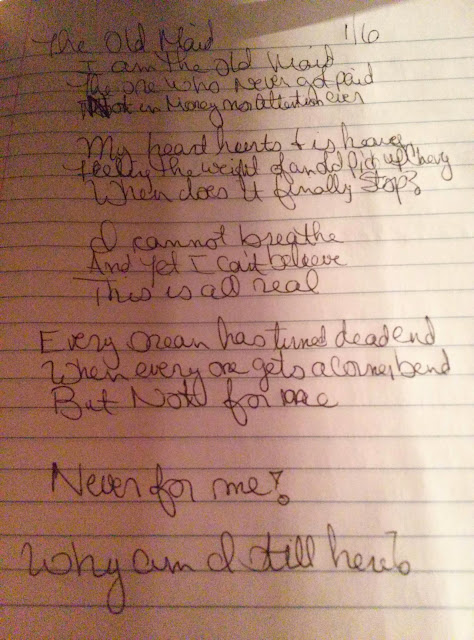 The Old Maid 1/6
I am the Old Maid
The one who Never got paid
Not in Money nor Attention ever
My heart hearts + is heavy
Feeling the weight of an old
When does it finally stop?
I cannot breathe
And yet I can't beleeve
This is all real
Every has turned deadend
When every one gets a corner, bend
But Not for me
Never for me?
Why am I still here?